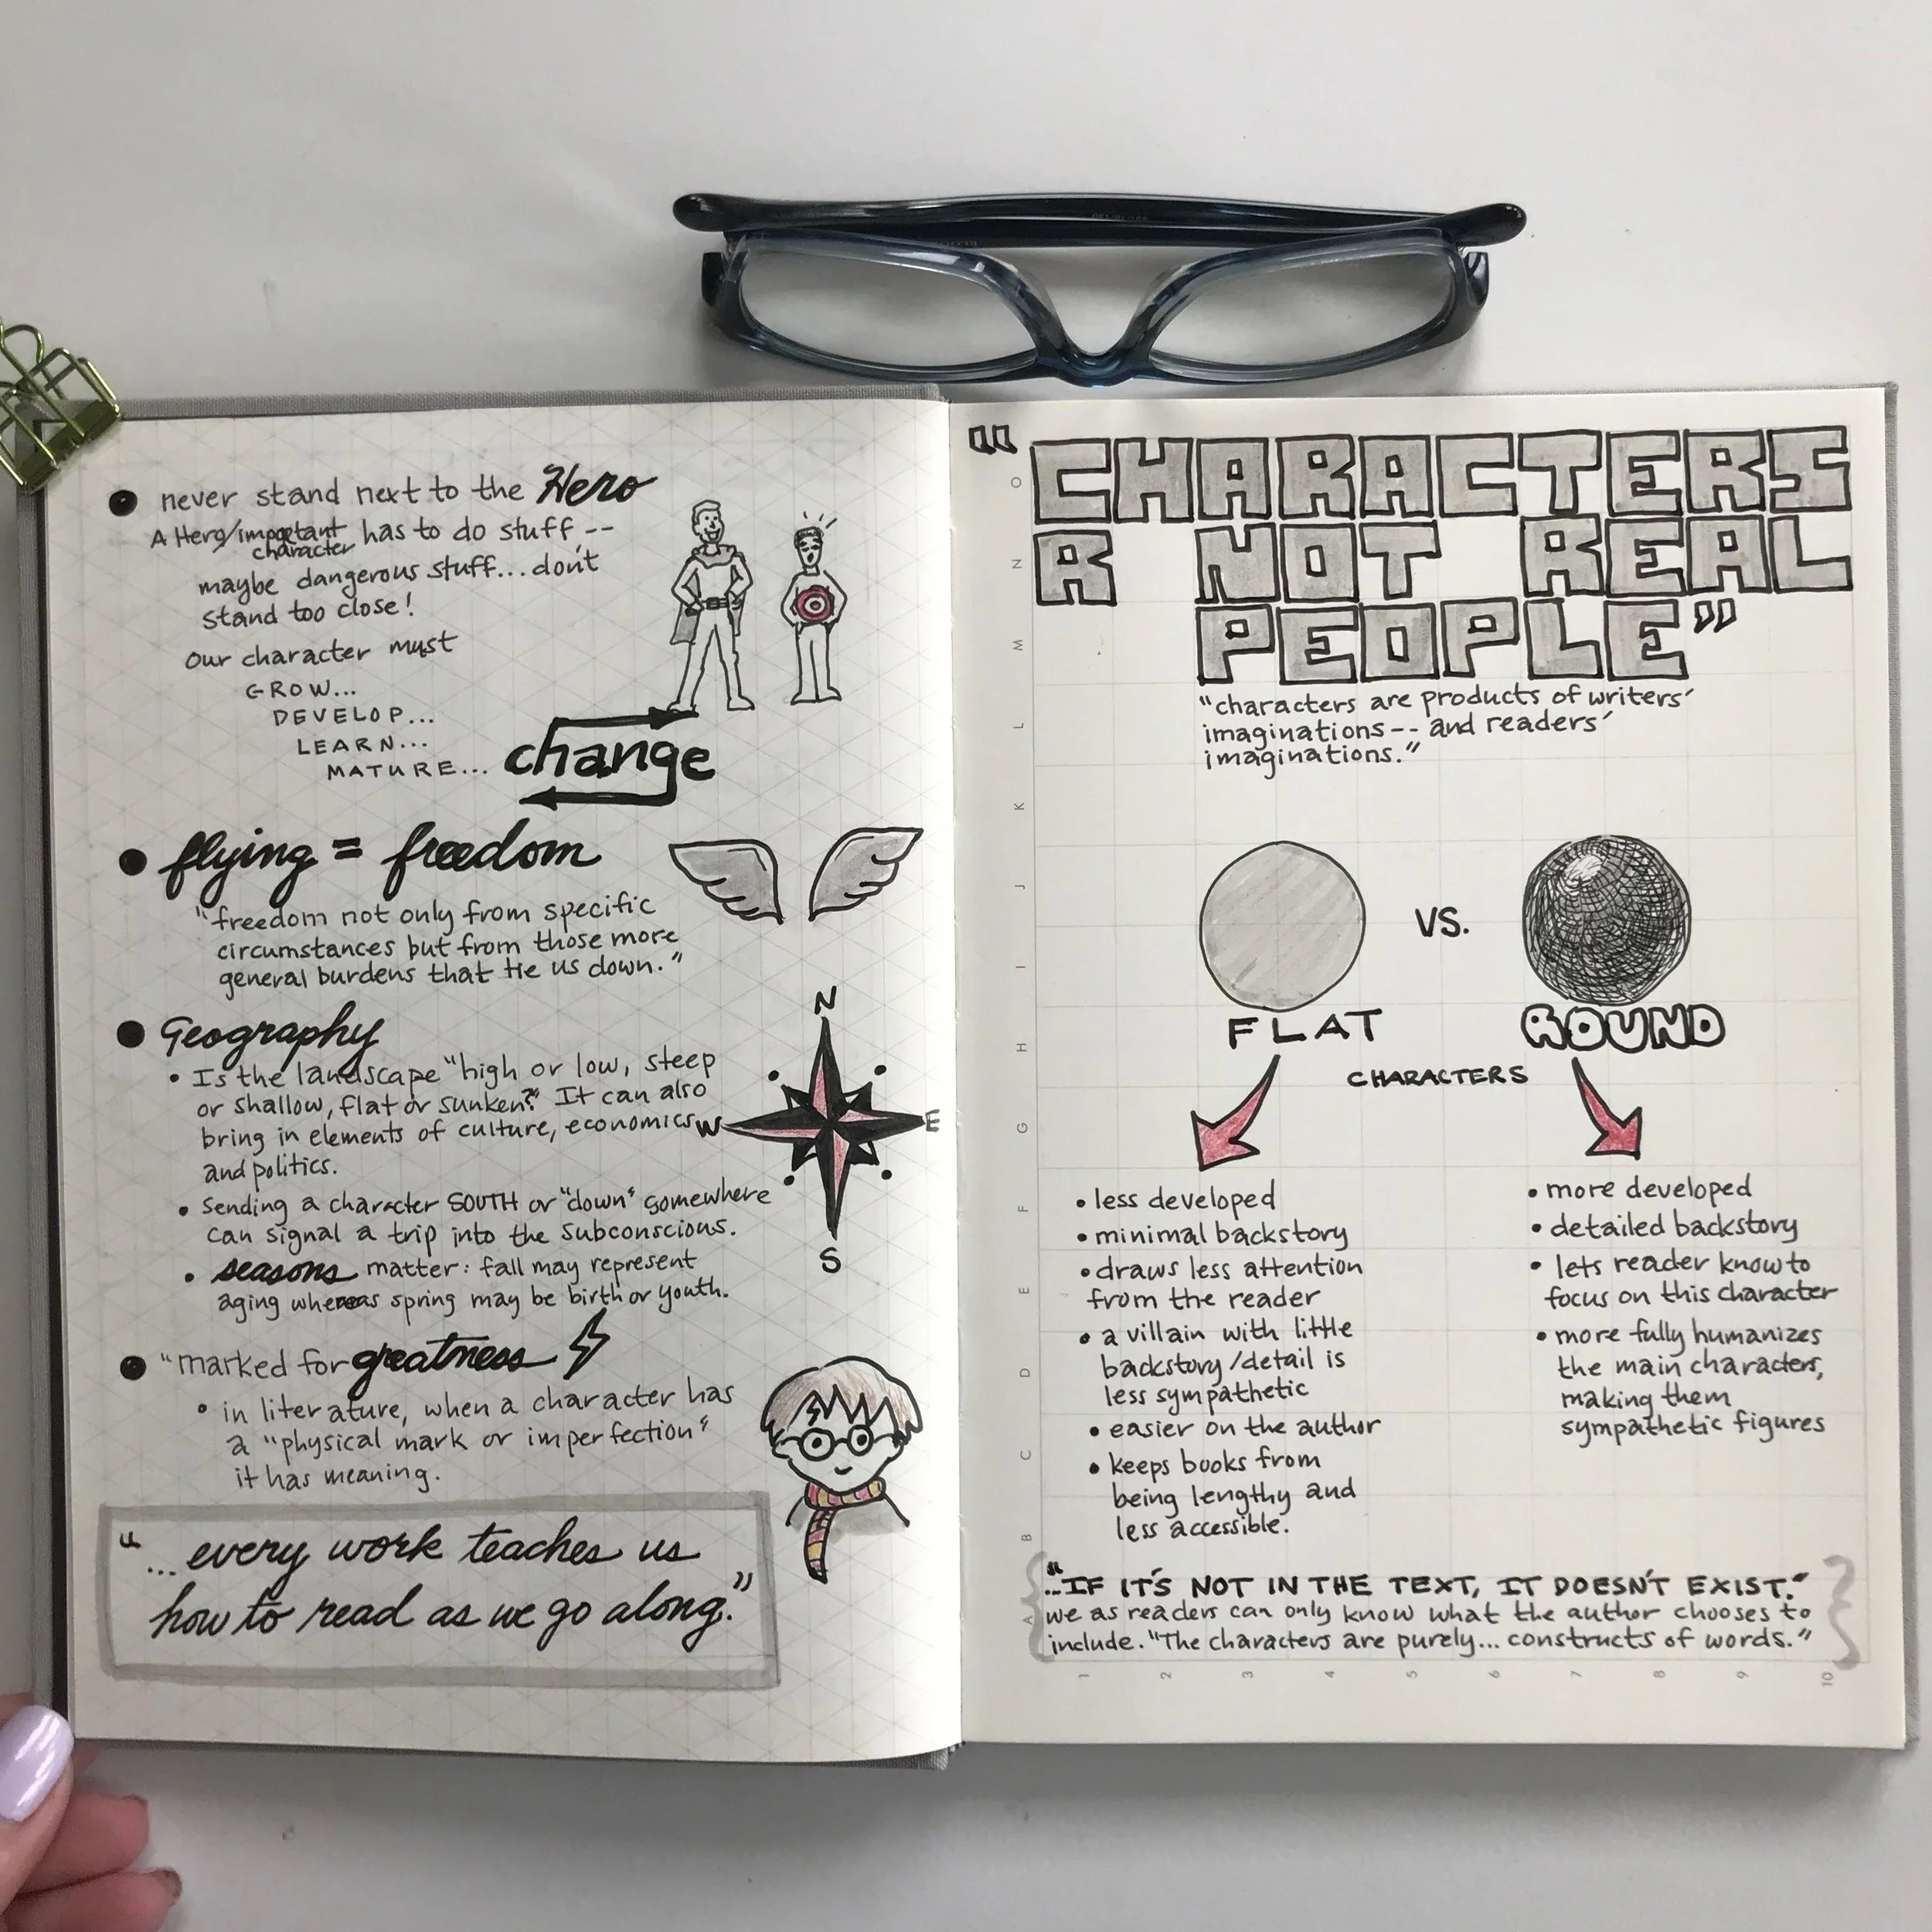 never stand next to the Hero
A Hero/important character has to do stuff --
maybe dangerous stuff...don't
stand too close!
Our character must
GROW...
DEVELOP...
LEARN...
MATURE... change
flying = freedom
"freedom not only from specific
circumstances but from those more
general burdens that tie us down."
Geography
• Is the landscape "high or low, steep
or shallow, flat or sunken?" It can also
bring in elements of culture, economics,
and politics.
• Sending a character SOUTH or "down" somewhere
can signal a trip into the subconscious.
• seasons matter: fall may represent
aging whereas spring may be birth or youth.
N
W
E
S
"marked for greatness
• in literature, when a character has
a "physical mark or imperfection"
it has meaning.
"...every work teaches us
how to read as we go along."
"CHARACTERS
R NOT REAL
PEOPLE"
"characters are products of writers'
imaginations -- and readers'
imaginations."
VS.
FLAT
ROUND
CHARACTERS
• less developed
• minimal backstory
• draws less attention
from the reader
• a villain with little
backstory/detail is
less sympathetic
• easier on the author
• keeps books from
being lengthy and
less accessible.
• more developed
• detailed backstory
• lets reader know to
focus on this character
• more fully humanizes
the main characters,
making them
sympathetic figures
"...IF IT'S NOT IN THE TEXT, IT DOESN'T EXIST."
we as readers can only know what the author chooses to
include. "The characters are purely... constructs of words."
O
N
M
L
K
J
I
H
G
F
E
D
C
B
A
1 2 3 4 5 6 7 8 9 10